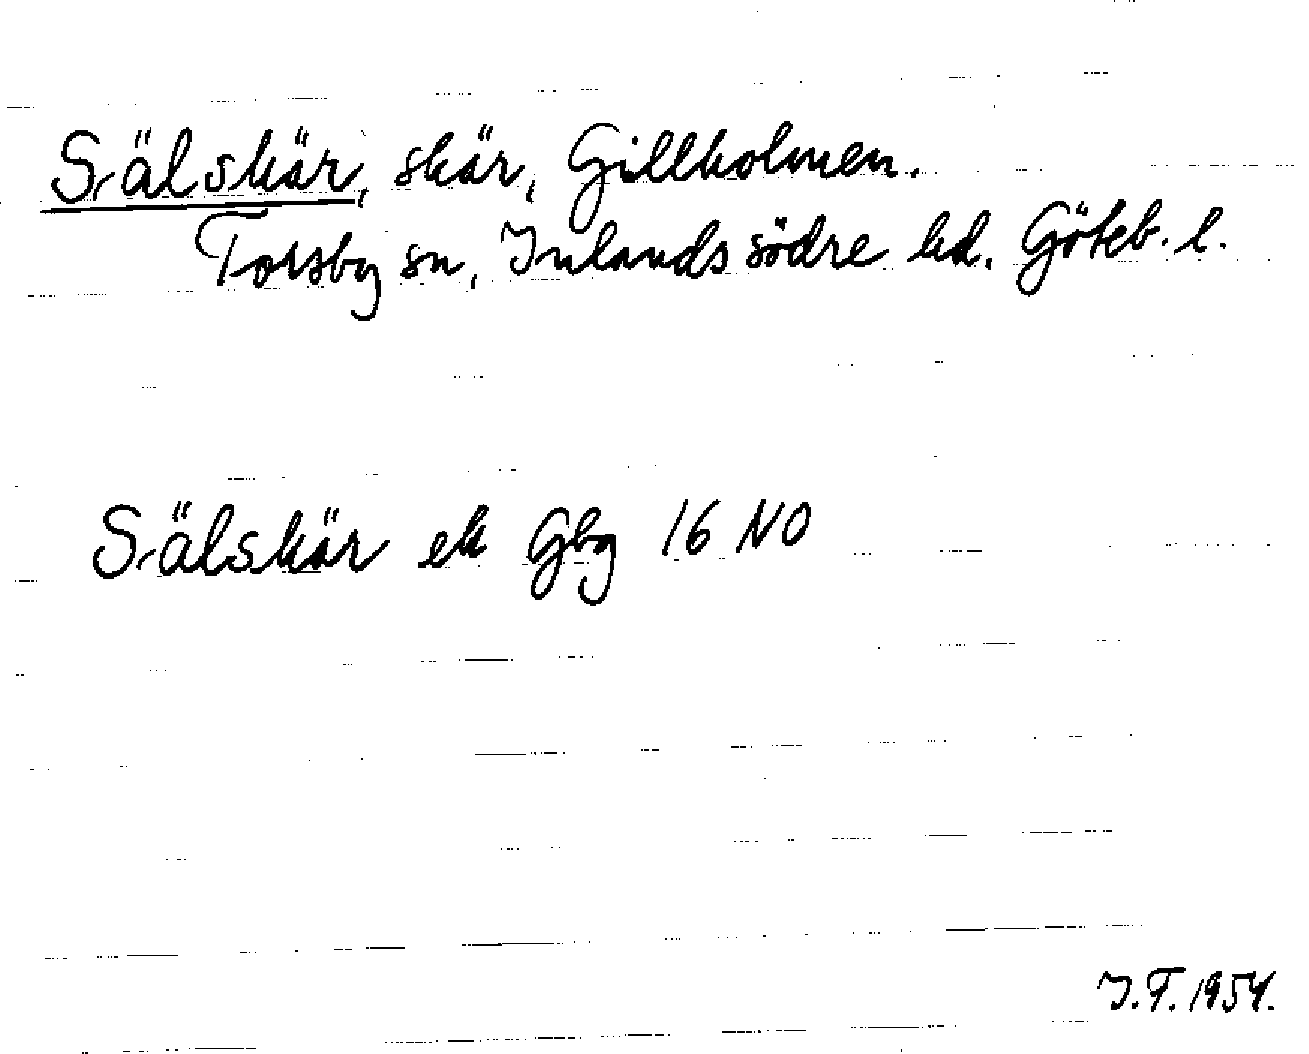 Sälskär, skär, Gillholmen.
Torsby sn, Inlands södre hd. Göteb. l.
Sälskär ek Gbg 16 NO
I.F. 1954.